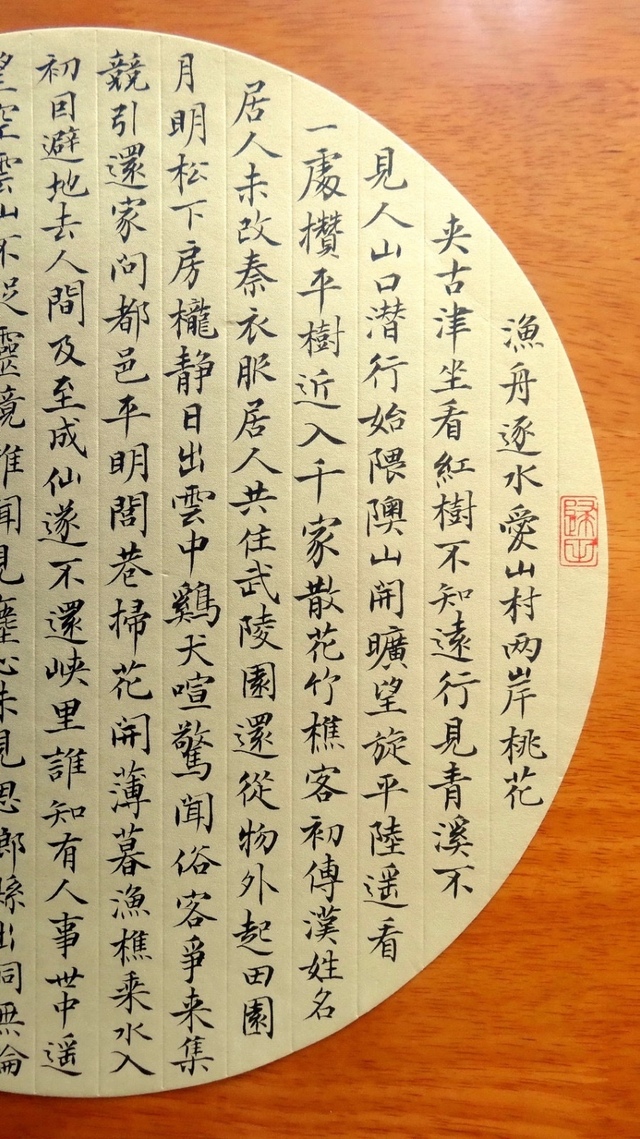 漁舟逐水愛山村两岸桃花
夹古津坐看紅樹不知遠行見青溪不
見人山口潜行始隈隩山開曠望旋平陸遥看
一處攢平樹近入千家散花竹樵客初傳漢姓名
居人未改秦衣服居人共住武陵園還從物外起田園
月明松下房櫳静日出雲中鷄犬喧驚聞俗客爭来集
競引還家問都邑平明閭巷掃花開薄暮漁樵乘水入
初因避地去人間及至成仙遂不還峽里誰知有人事世中遥
望空雲山不靈境聞見塵心未思縣出洞無論